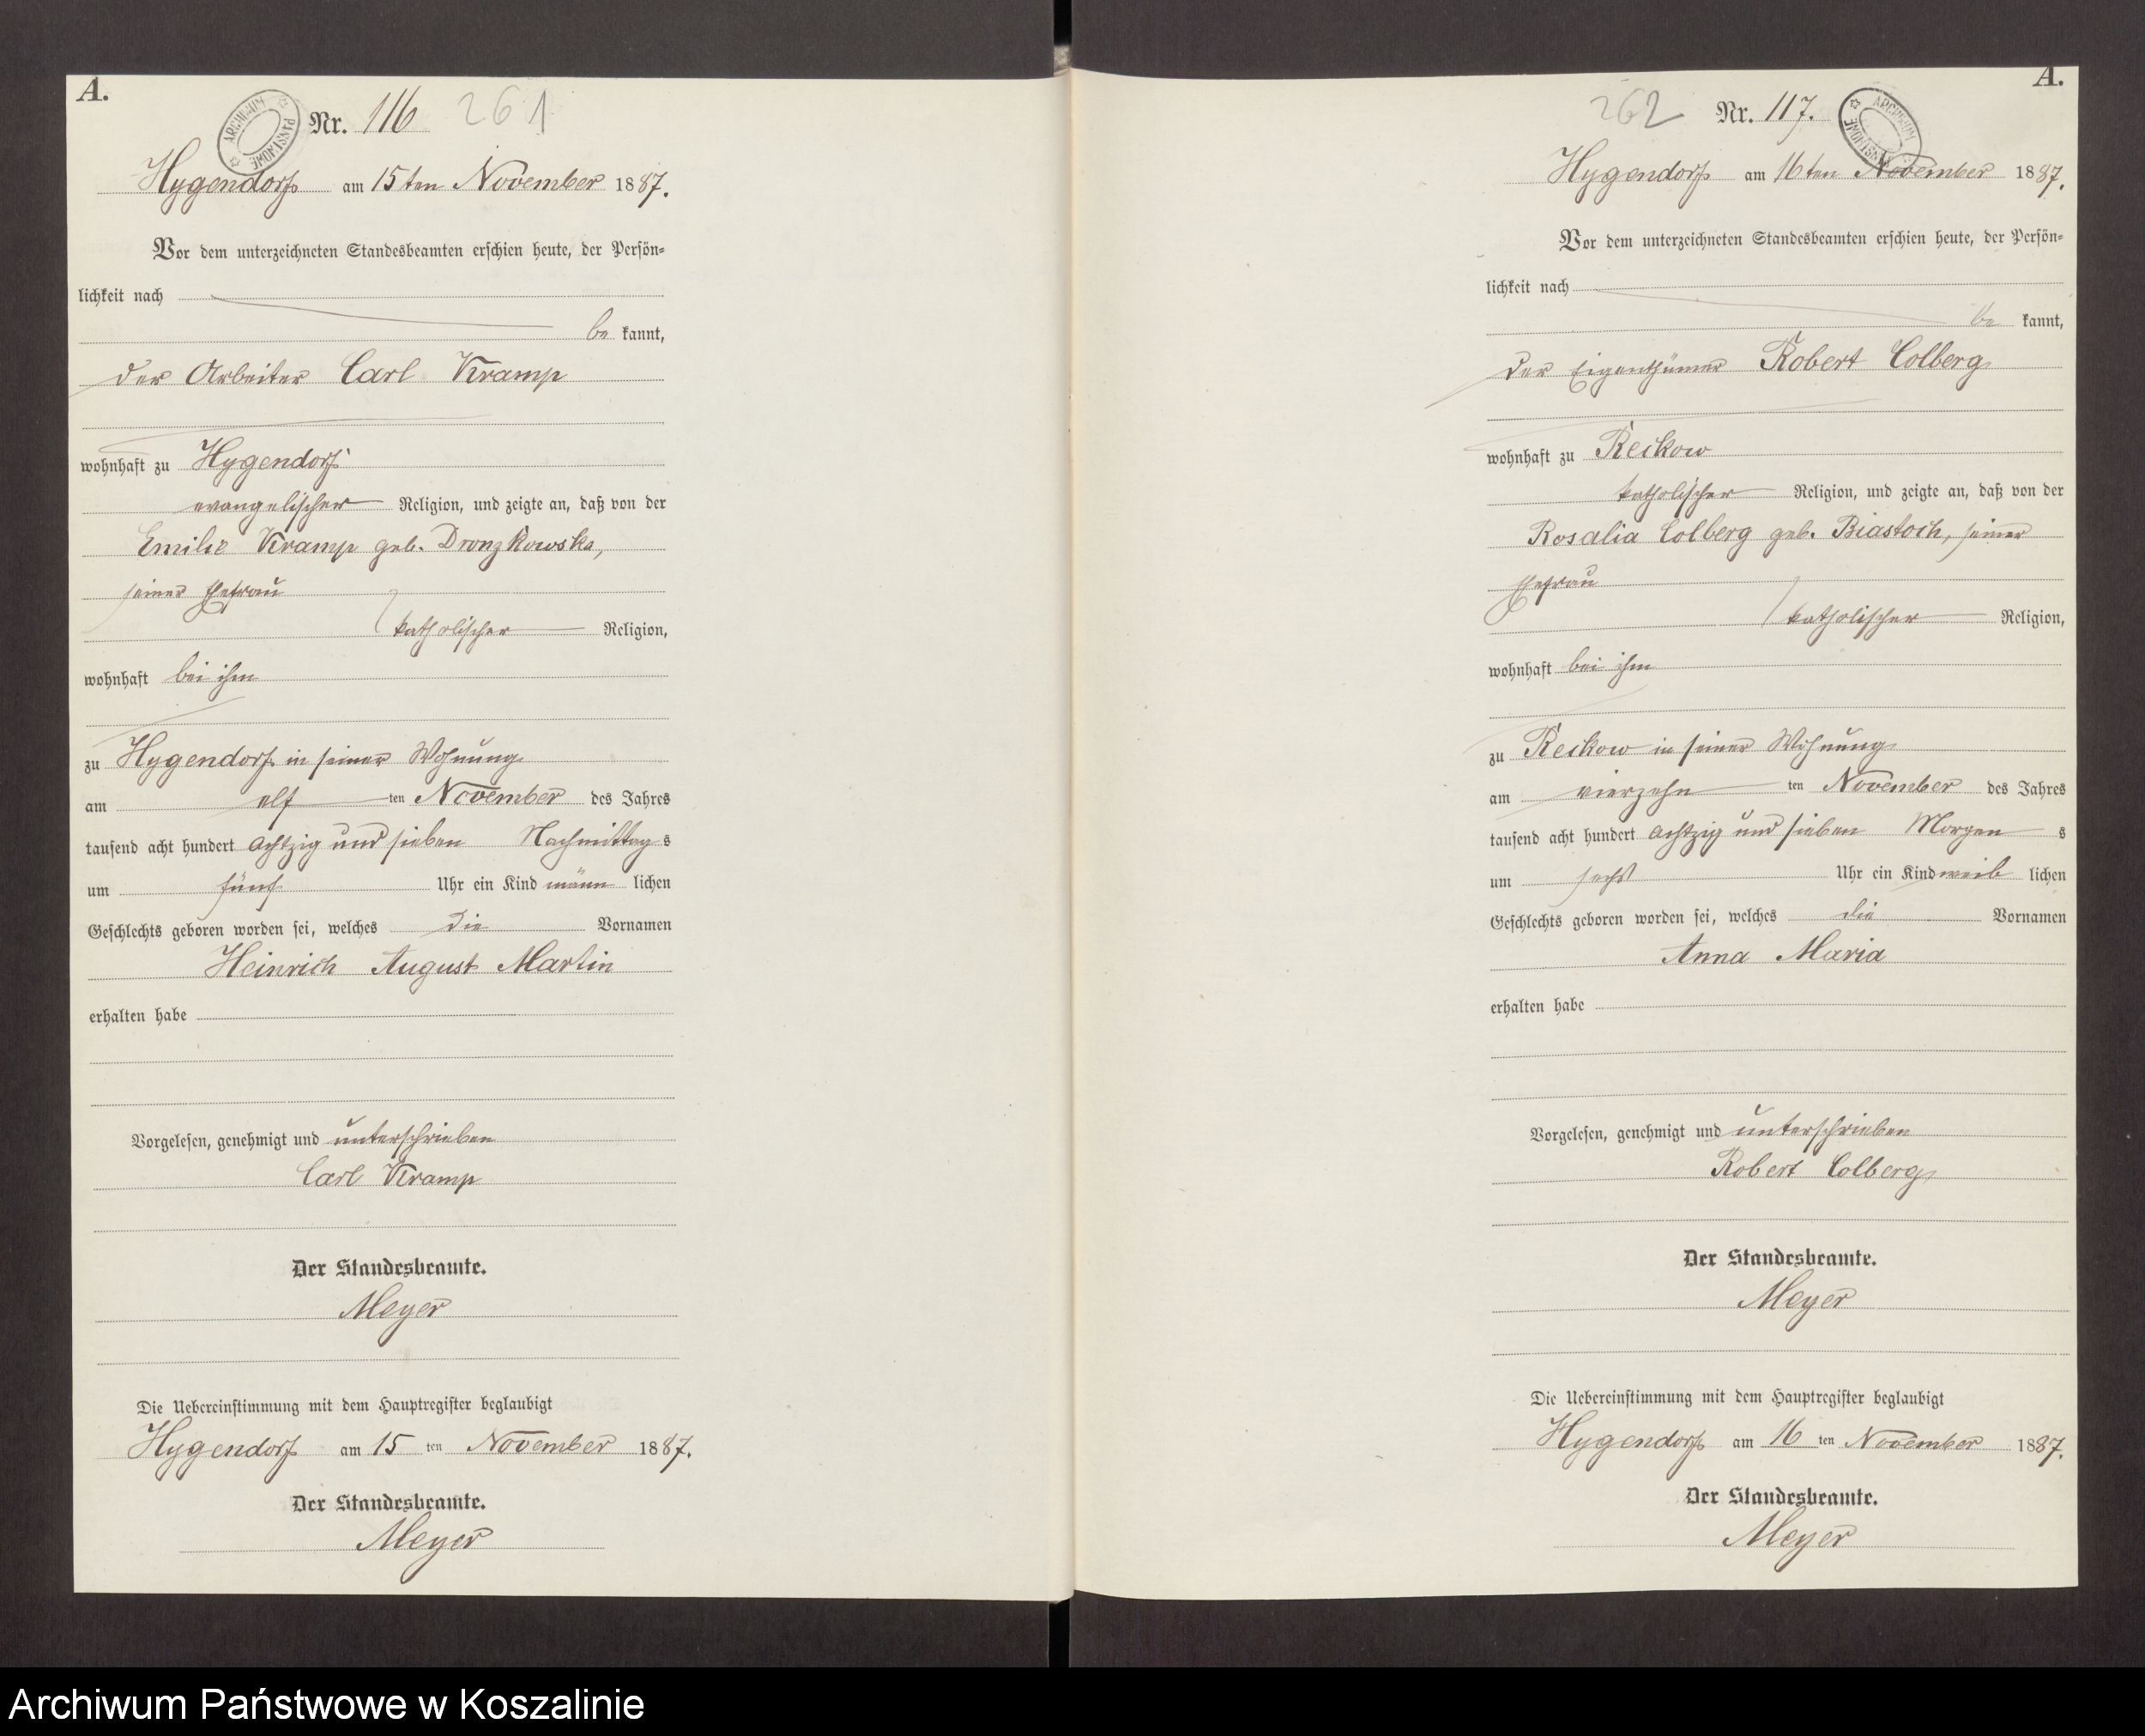 A.
ARCHIWUM PAŃSTWOWE
Nr. 116 261
Hygendorf am 15ten November 1887.
Vor dem unterzeichneten Standesbeamten erschien heute, der Persön=
lichkeit nach
be kannt,
der Arbeiter Carl Kramp
wohnhaft zu Hygendorf
evangelischer Religion, und zeigte an, daß von der
Emilie Kramp geb. Dronzkowska,
seiner Ehefrau
katholischer Religion,
wohnhaft bei ihm
zu Hygendorf in seiner Wohnung
am elf ten November des Jahres
tausend acht hundert achtzig und sieben Nachmittag s
um fünf Uhr ein Kind männ lichen
Geschlechts geboren worden sei, welches die Vornamen
Heinrich August Martin
erhalten habe
Vorgelesen, genehmigt und unterschrieben
Carl Kramp
Der Standesbeamte.
Meyer
Die Uebereinstimmung mit dem Hauptregister beglaubigt
Hygendorf am 15 ten November 1887.
Der Standesbeamte.
Meyer
A.
262 Nr. 117.
ARCHIWUM PAŃSTWOWE
Hygendorf am 16ten November 1887.
Vor dem unterzeichneten Standesbeamten erschien heute, der Persön=
lichkeit nach
be kannt,
der Eigenthümer Robert Colberg
wohnhaft zu Reckow
katholischer Religion, und zeigte an, daß von der
Rosalia Colberg geb. Biastoch, seiner
Ehefrau
katholischer Religion,
wohnhaft bei ihm
zu Reckow in seiner Wohnung
am vierzehn ten November des Jahres
tausend acht hundert achtzig und sieben Morgen s
um sechs Uhr ein Kind weib lichen
Geschlechts geboren worden sei, welches die Vornamen
Anna Maria
erhalten habe
Vorgelesen, genehmigt und unterschrieben
Robert Colberg
Der Standesbeamte.
Meyer
Die Uebereinstimmung mit dem Hauptregister beglaubigt
Hygendorf am 16 ten November 1887.
Der Standesbeamte.
Meyer
Archiwum Państwowe w Koszalinie